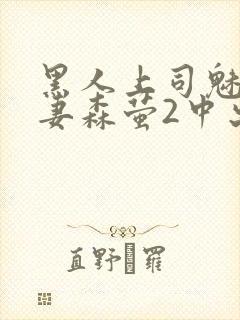 黑人上司魅
妻森萤2中
直野 羅